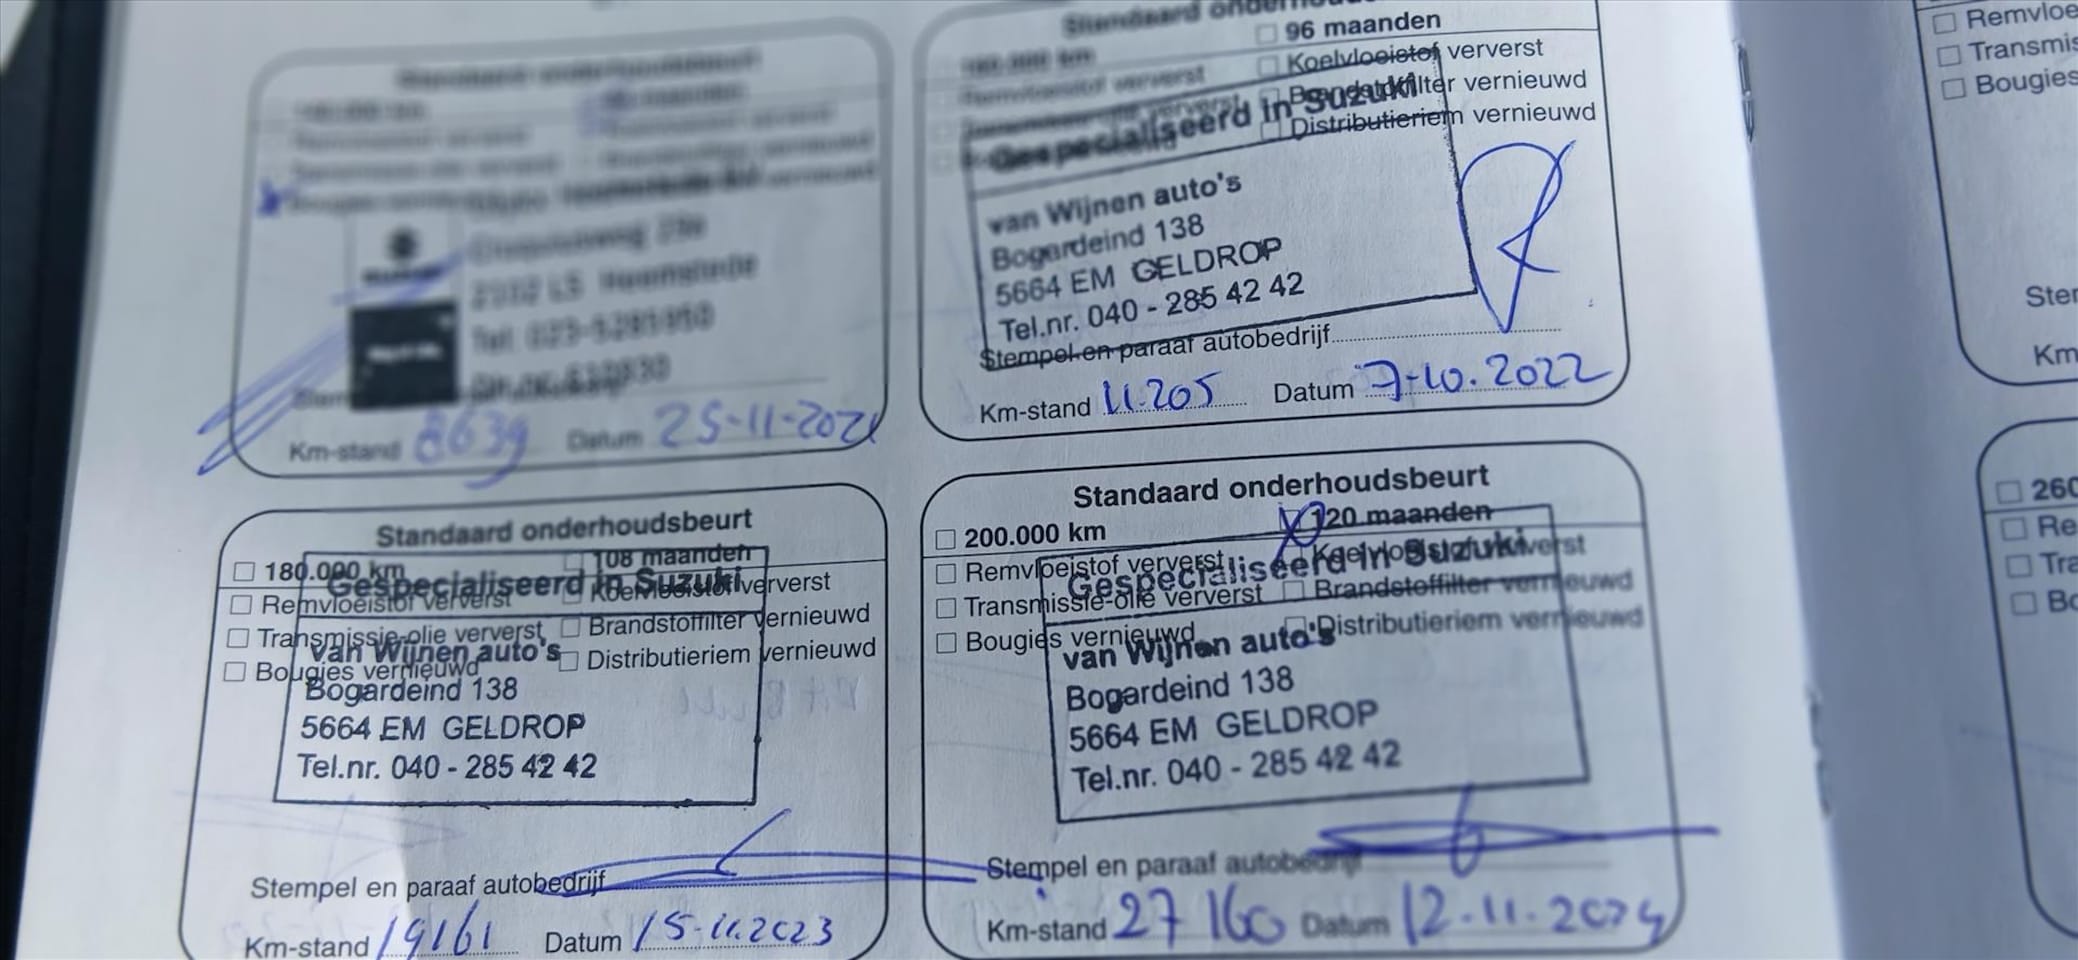 Standaard onderhoudsbeurt
Heemstede
Km-stand 8639 Datum 25-11-2021
Standaard
96 maanden
Koelvloeistof ververst
Brandstoffilter vernieuwd
Distributieriem vernieuwd
Gespecialiseerd in Suzuki
van Wijnen auto's
Bogardeind 138
5664 EM GELDROP
Tel.nr. 040 - 285 42 42
Stempel en paraaf autobedrijf
Km-stand 11.205 Datum 7-10.2022
Standaard onderhoudsbeurt
180.000 km 108 maanden
Remvloeistof ververst Koelvloeistof ververst
Transmissie-olie ververst Brandstoffilter vernieuwd
Bougies vernieuwd Distributieriem vernieuwd
Gespecialiseerd in Suzuki
van Wijnen auto's
Bogardeind 138
5664 EM GELDROP
Tel.nr. 040 - 285 42 42
Stempel en paraaf autobedrijf
Km-stand 19161 Datum 15-11.2023
Standaard onderhoudsbeurt
200.000 km 120 maanden
Remvloeistof ververst Koelvloeistof ververst
Transmissie-olie ververst Brandstoffilter vernieuwd
Bougies vernieuwd Distributieriem vernieuwd
Gespecialiseerd in Suzuki
van Wijnen auto's
Bogardeind 138
5664 EM GELDROP
Tel.nr. 040 - 285 42 42
Stempel en paraaf autobedrijf
Km-stand 27160 Datum 12-11-2024
Remvloe
Transmis
Bougies
Ster
Km
260
Re
Tra
Bo